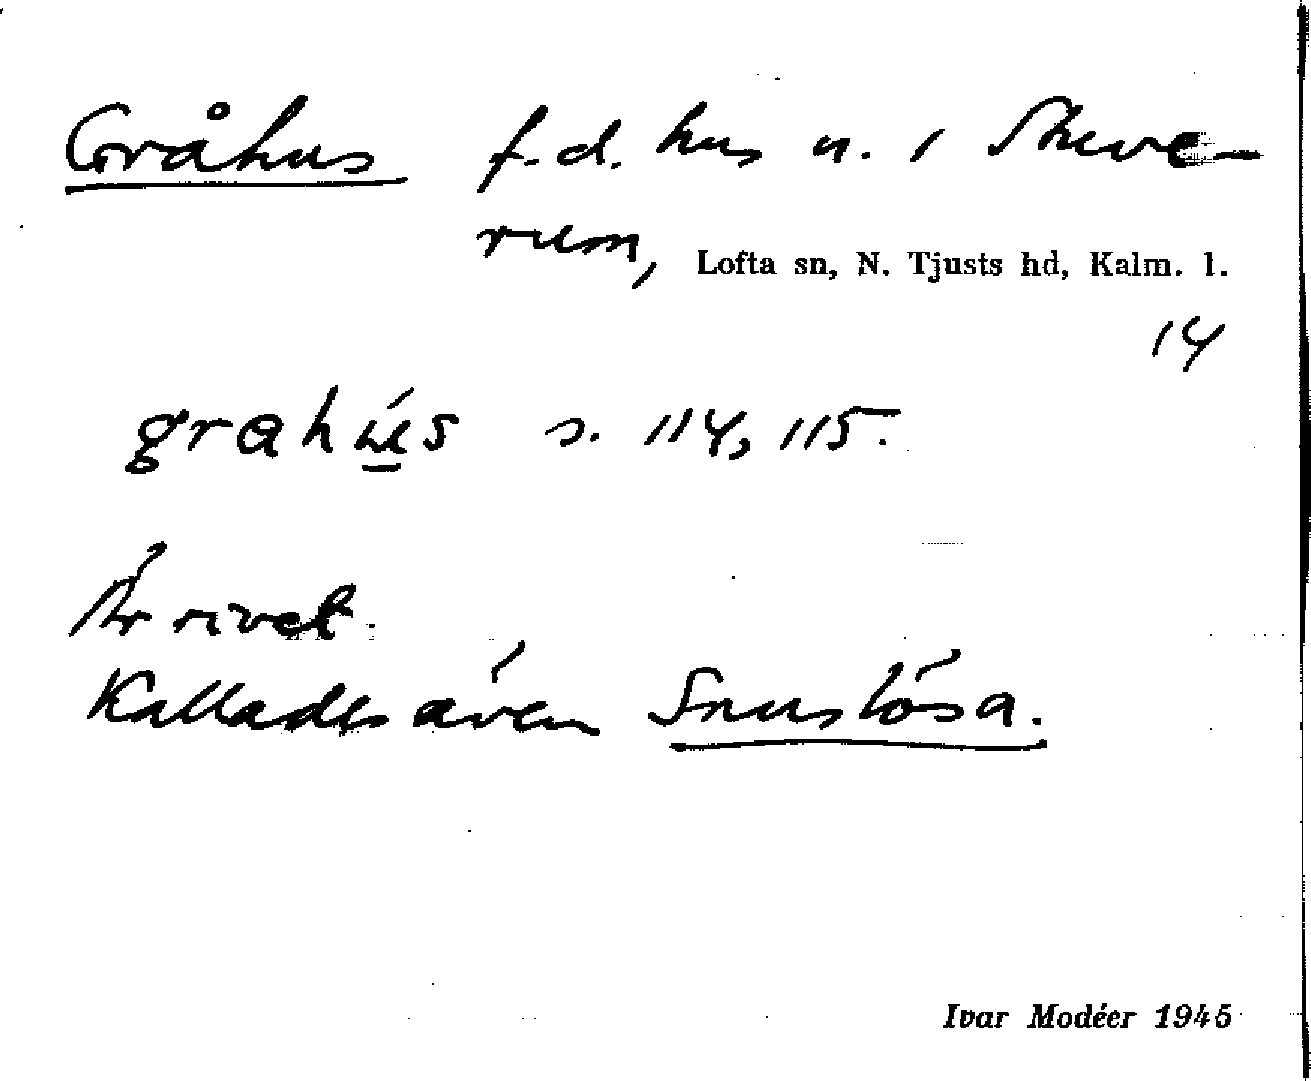 Gråhus f.d. hus n. i Skeve-
rum, Lofta sn, N. Tjusts hd, Kalm. l.
14
grahús s. 114, 115.
Är rivet.
Kallades även Snuslösa.
Ivar Modéer 1945